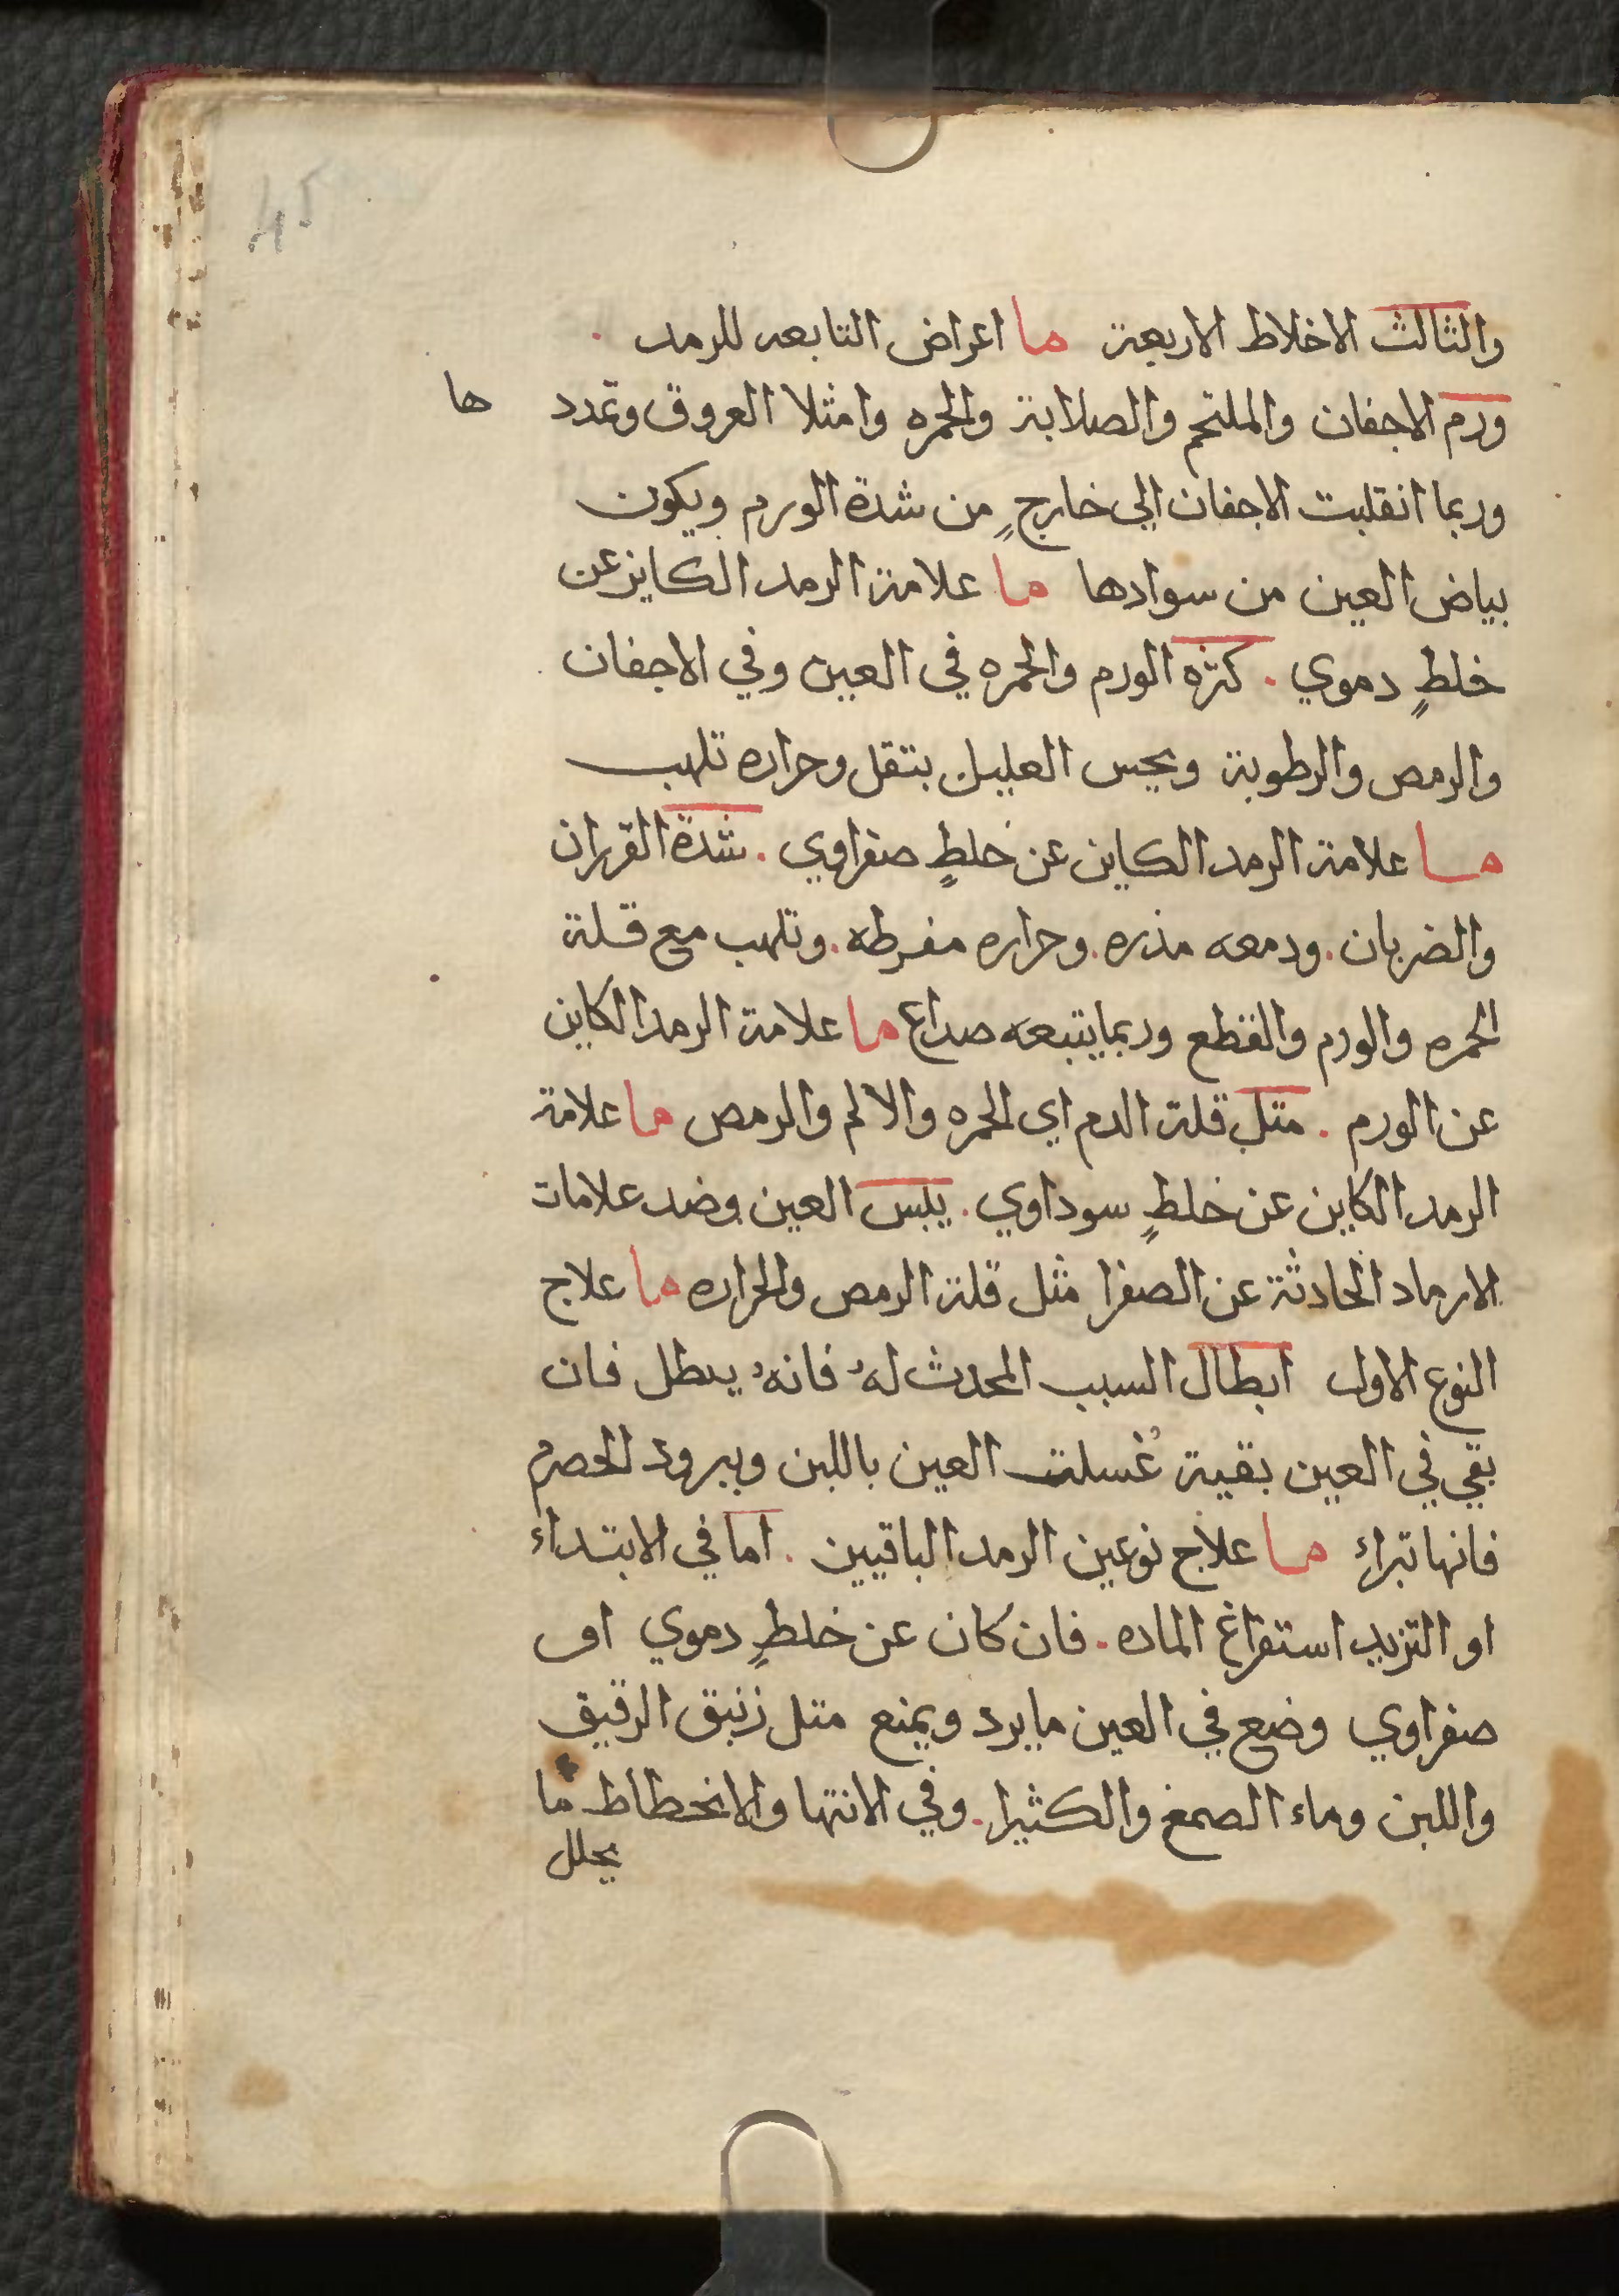 45
والثالث الاخلاط الاربعة ما اعراض التابعه للرمد .
ورم الاجفان والملتحم والصلابة والحمره وامثلا العروق وتمدد ها
وربما انقلبت الاجفان الى خارجٍ من شدة الورم ويكون
بياض العين من سوادها ما علامة الرمد الكاين عن
خلطٍ دموي . كثره الورم والحمره في العين وفي الاجفان
والرمص والرطوبة ويحس العليل بتقل وحراره تلهب
ما علامة الرمد الكاين عن خلطٍ صفراوي . شدة القرران
والضربان . ودمعه مذره . وحراره مفرطه . وتلهب مع قلة
الحمره والورم والقطع وربما يتبعه صداع ما علامة الرمد الكاين
عن الورم . متل قلة الدم اي الحمره والالم والرمص ما علامة
الرمد الكاين عن خلطٍ سوداوي . يبس العين وضد علامات
الارماد الحادثة عن الصفرا مثل قلة الرمص والحراره ما علاج
النوع الاول ابطال السبب المحدث لهُ فانهُ يبطل فان
بقي في العين بقية غُسلت العين باللبن وببرود الحصرم
فانها تبراء ما علاج نوعين الرمد الباقيين . اما في الابتداء
او التزيد استفراغ الماده . فان كان عن خلطٍ دموي او
صفراوي وضع في العين ما يرد ويمنع متل زنبق الرقيق
واللبن وماء الصمغ والكثيرا . وفي الانتها والانحطاط ما
يحلل